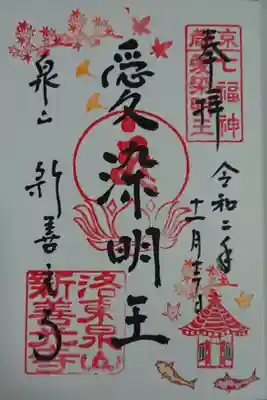 奉拝
京七福神
愛染明王
令和二年
十一月
愛染明王
泉山
新善光寺
洛東泉山
新善光寺